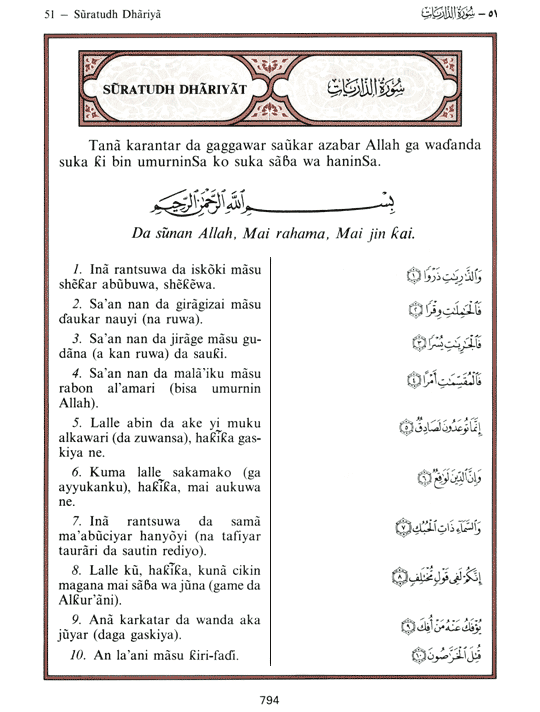 51 – Sũratudh Dhãriyã
٥١ – سُورَةُ الذَّارِيَاتِ
SŨRATUDH DHÃRIYÃT
سُورَةُ الذَّارِيَاتِ
Tanã karantar da gaggawar saũkar azabar Allah ga waɗanda
suka ƙi bin umurninSa ko suka sãɓa wa haninSa.
بِسْمِ ٱللَّهِ ٱلرَّحْمَٰنِ ٱلرَّحِيمِ
Da sũnan Allah, Mai rahama, Mai jin ƙai.
1. Inã rantsuwa da iskõki mãsu
shẽƙar abũbuwa, shẽƙẽwa.
2. Sa'an nan da girãgizai mãsu
ɗaukar nauyi (na ruwa).
3. Sa'an nan da jirãge mãsu gu-
dãna (a kan ruwa) da sauƙi.
4. Sa'an nan da malã'iku mãsu
rabon al'amari (bisa umurnin
Allah).
5. Lalle abin da ake yi muku
alkawari (da zuwansa), haƙĩƙa gas-
kiya ne.
6. Kuma lalle sakamako (ga
ayyukanku), haƙĩƙa, mai aukuwa
ne.
7. Inã rantsuwa da samã
ma'abũciyar hanyõyi (na tafiyar
taurãri da sautin rediyo).
8. Lalle kũ, haƙĩƙa, kunã cikin
magana mai sãɓa wa jũna (game da
Alƙur'ãni).
9. Anã karkatar da wanda aka
jũyar (daga gaskiya).
10. An la'ani mãsu ƙiri-faɗi.
وَٱلذَّٰرِيَٰتِ ذَرْوًا ۝١
فَٱلْحَٰمِلَٰتِ وِقْرًا ۝٢
فَٱلْجَٰرِيَٰتِ يُسْرًا ۝٣
فَٱلْمُقَسِّمَٰتِ أَمْرًا ۝٤
إِنَّمَا تُوعَدُونَ لَصَادِقٌ ۝٥
وَإِنَّ ٱلدِّينَ لَوَٰقِعٌ ۝٦
وَٱلسَّمَآءِ ذَاتِ ٱلْحُبُكِ ۝٧
إِنَّكُمْ لَفِى قَوْلٍ مُّخْتَلِفٍ ۝٨
يُؤْفَكُ عَنْهُ مَنْ أُفِكَ ۝٩
قُتِلَ ٱلْخَرَّٰصُونَ ۝١٠
794